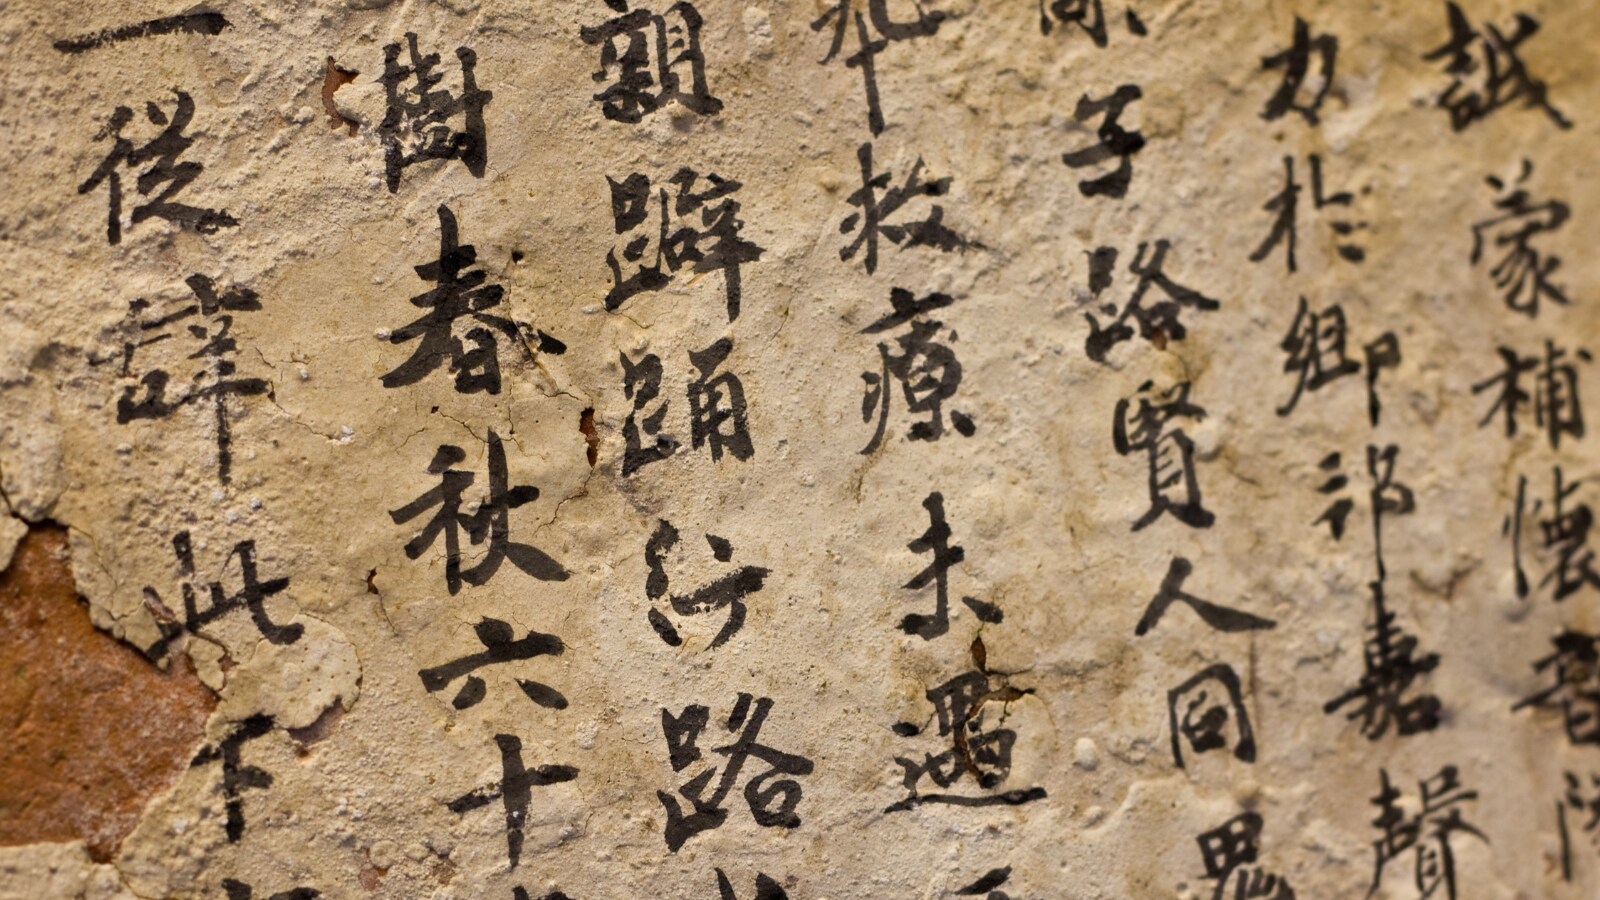 誠蒙補懷
力於組鄉祁嘉聲
子路賢人同
救療未遇
親躃踊行路
樹春秋六十
一從諱此下